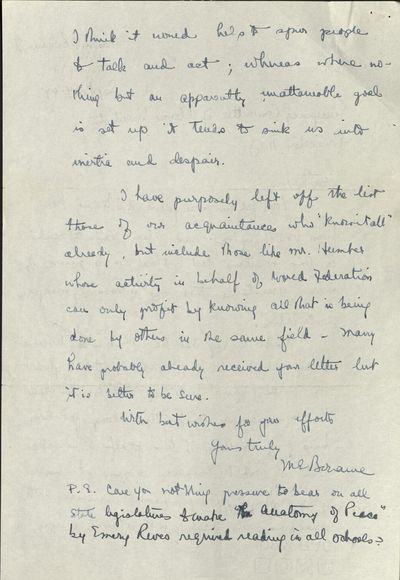 I think it would help to spur people
to talk and act; whereas where no-
thing but an apparently unattainable goal
is set up it tends to sink us into
inertia and despair.
I have purposely left off the list
those of our acquaintances who "know it all"
already, but include those like Mr. Humber
whose activity in behalf of World Federation
can only profit by knowing all that is being
done by others in the same field - Many
have probably already received your letter but
it is better to be sure.
With best wishes for your efforts
Yours truly
P.S. Can you not bring pressure to bear on all
state legislatures to make the "Anatomy of Peace"
by Emery Reves required reading in all schools?